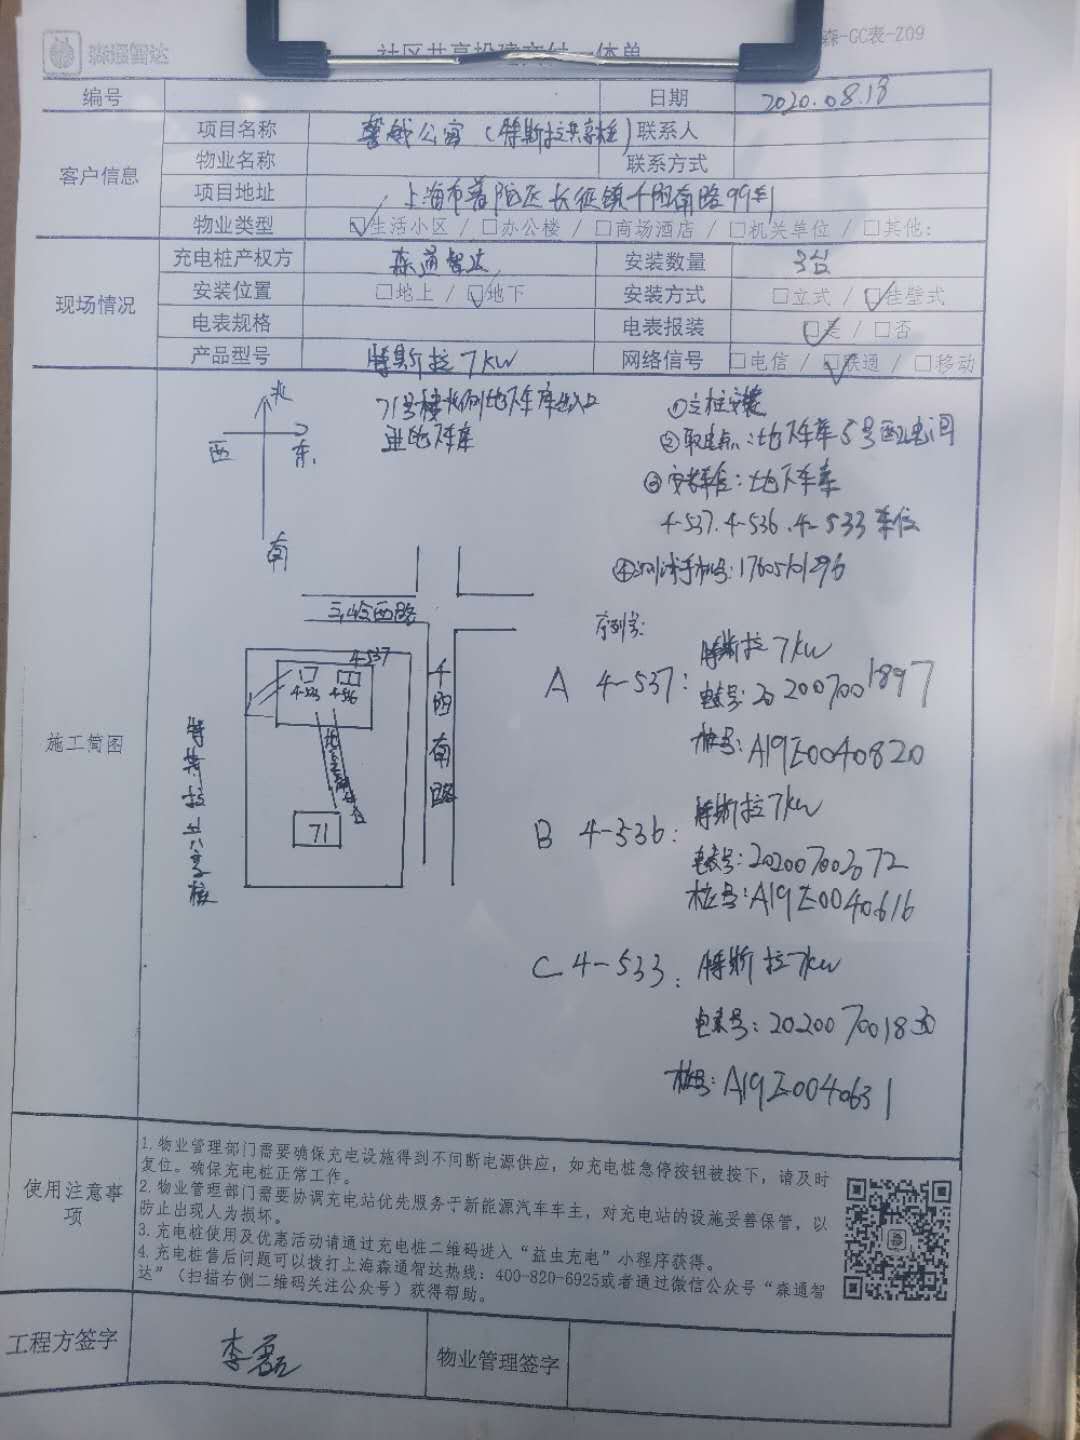 森通智达
社区共享投建交付一体单
森-GC表-Z09
编号
日期 2020.08.18
客户信息
项目名称 公寓(特斯拉共享桩) 联系人
物业名称 联系方式
项目地址 上海市普陀区长征镇千阳南路99弄
物业类型 ☑生活小区 / □办公楼 / □商场酒店 / □机关单位 / □其他:
现场情况
充电桩产权方 森通智达 安装数量 3台
安装位置 □地上 / ☑地下 安装方式 □立式 / ☑挂壁式
电表规格 电表报装 ☑是 / □否
产品型号 特斯拉7kw 网络信号 □电信 / ☑联通 / □移动
施工简图
北
西 东
南
71号楼北侧地下车库出入口
进地下车库
①立柱安装
②取电点:地下车库5号配电间
③安装车位:地下车库
4-537.4-536.4-533车位
④测试手机号:17605101296
序列号:
A 4-537: 特斯拉7kw
电表号:202007001897
桩号:A19E0040820
B 4-536: 特斯拉7kw
电表号:202007002072
桩号:A19E0040616
C 4-533: 特斯拉7kw
电表号:202007001830
桩号:A19E0040631
千阳南路
4-537
4-533 4-536
71
使用注意事项
1.物业管理部门需要确保充电设施得到不间断电源供应,如充电桩急停按钮被按下,请及时
复位。确保充电桩正常工作。
2.物业管理部门需要协调充电站优先服务于新能源汽车车主,对充电站的设施妥善保管,以
防止出现人为损坏。
3.充电桩使用及优惠活动请通过充电桩二维码进入“益虫充电”小程序获得。
4.充电桩售后问题可以拨打上海森通智达热线:400-820-6925或者通过微信公众号“森通智
达”(扫描右侧二维码关注公众号)获得帮助。
工程方签字 李磊 物业管理签字